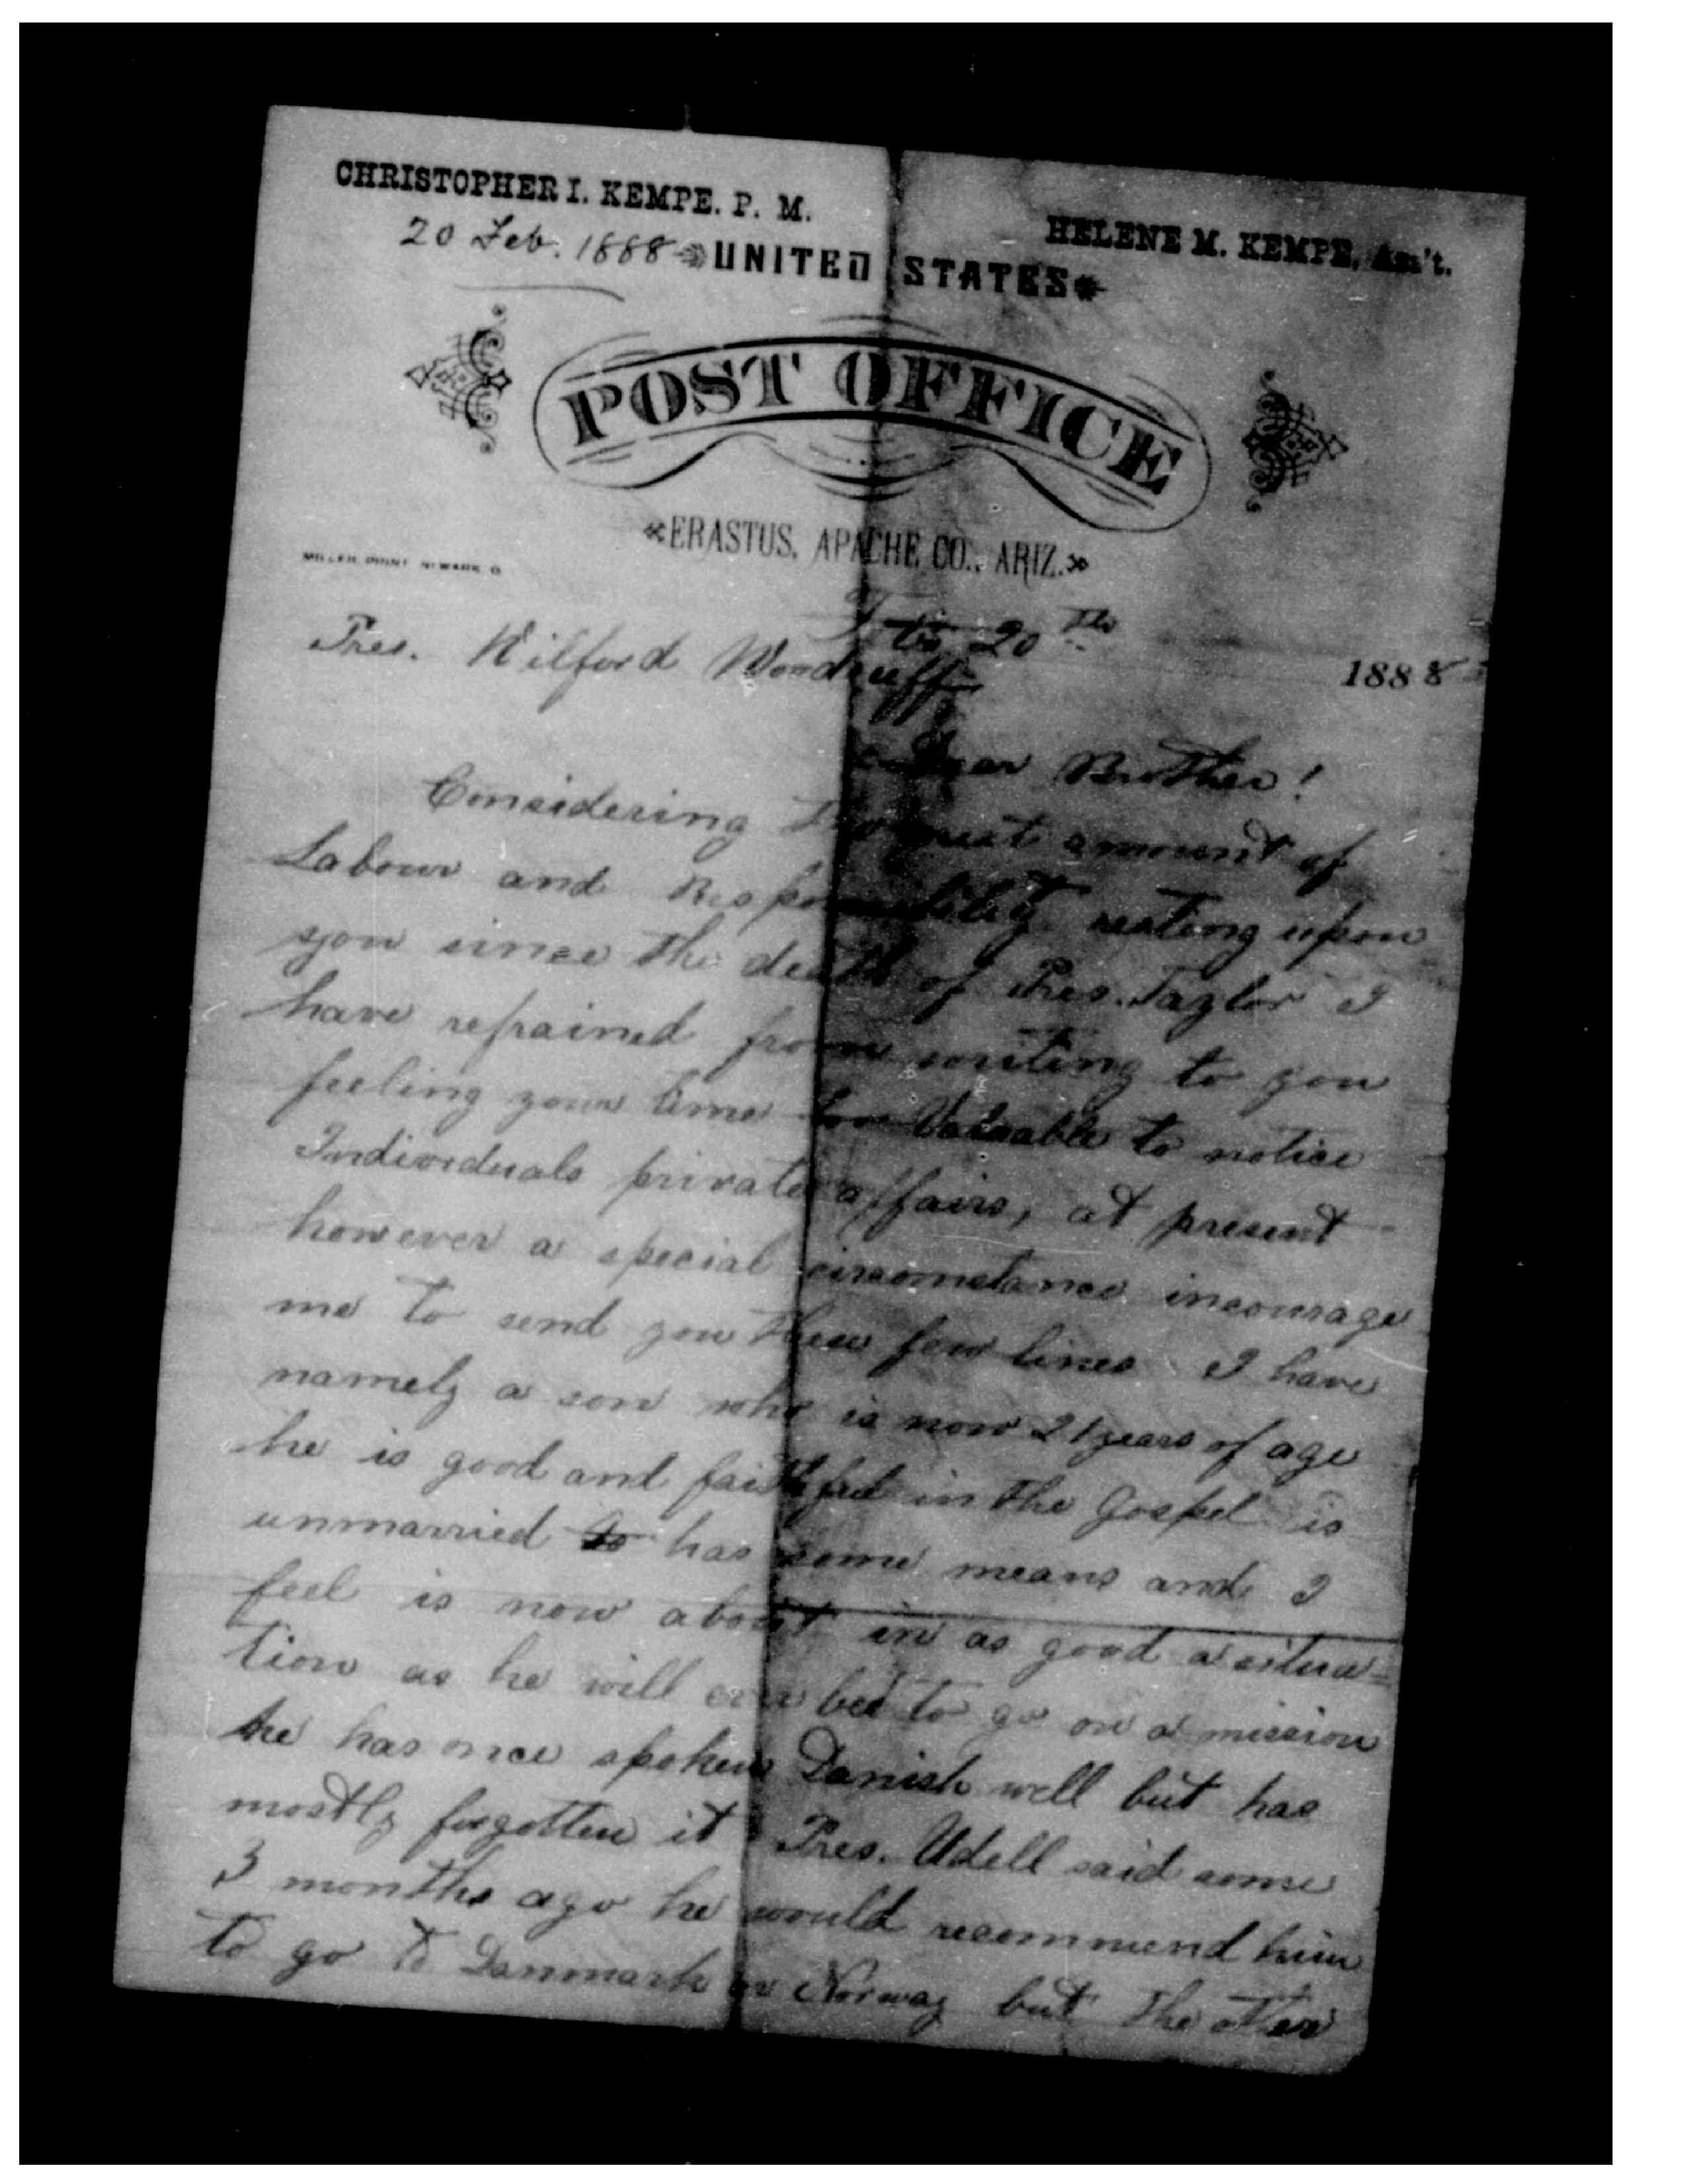 CHRISTOPHER I. KEMPE. P. M.
HELENE M. KEMPE, Ass't.
20 Feb. 1888
UNITED STATES
POST OFFICE
ERASTUS, APACHE CO., ARIZ.
MILLER PRINT NEWARK O
20th 1888
Pres. Wilford Woodruff
Dear Brother!
Considering the great amount of
Labour and Responsability resting upon
you since the death of Pres. Taylor I
have refrained from writing to you
feeling your time too Valuable to notice
Individuals private affairs, at present
however a special circomstance incourage
me to send you these few lines I have
namely a son who is now 21 years of age
he is good and faithful in the Gospel is
unmarried to has some means and I
feel is now about in as good a situa=
tion as he will ever bee to go on a mission
he has once spoken Danish well but has
mostly forgotten it Pres. Udell said some
3 months ago he would recommend him
to go to Danmark or Norway but the other